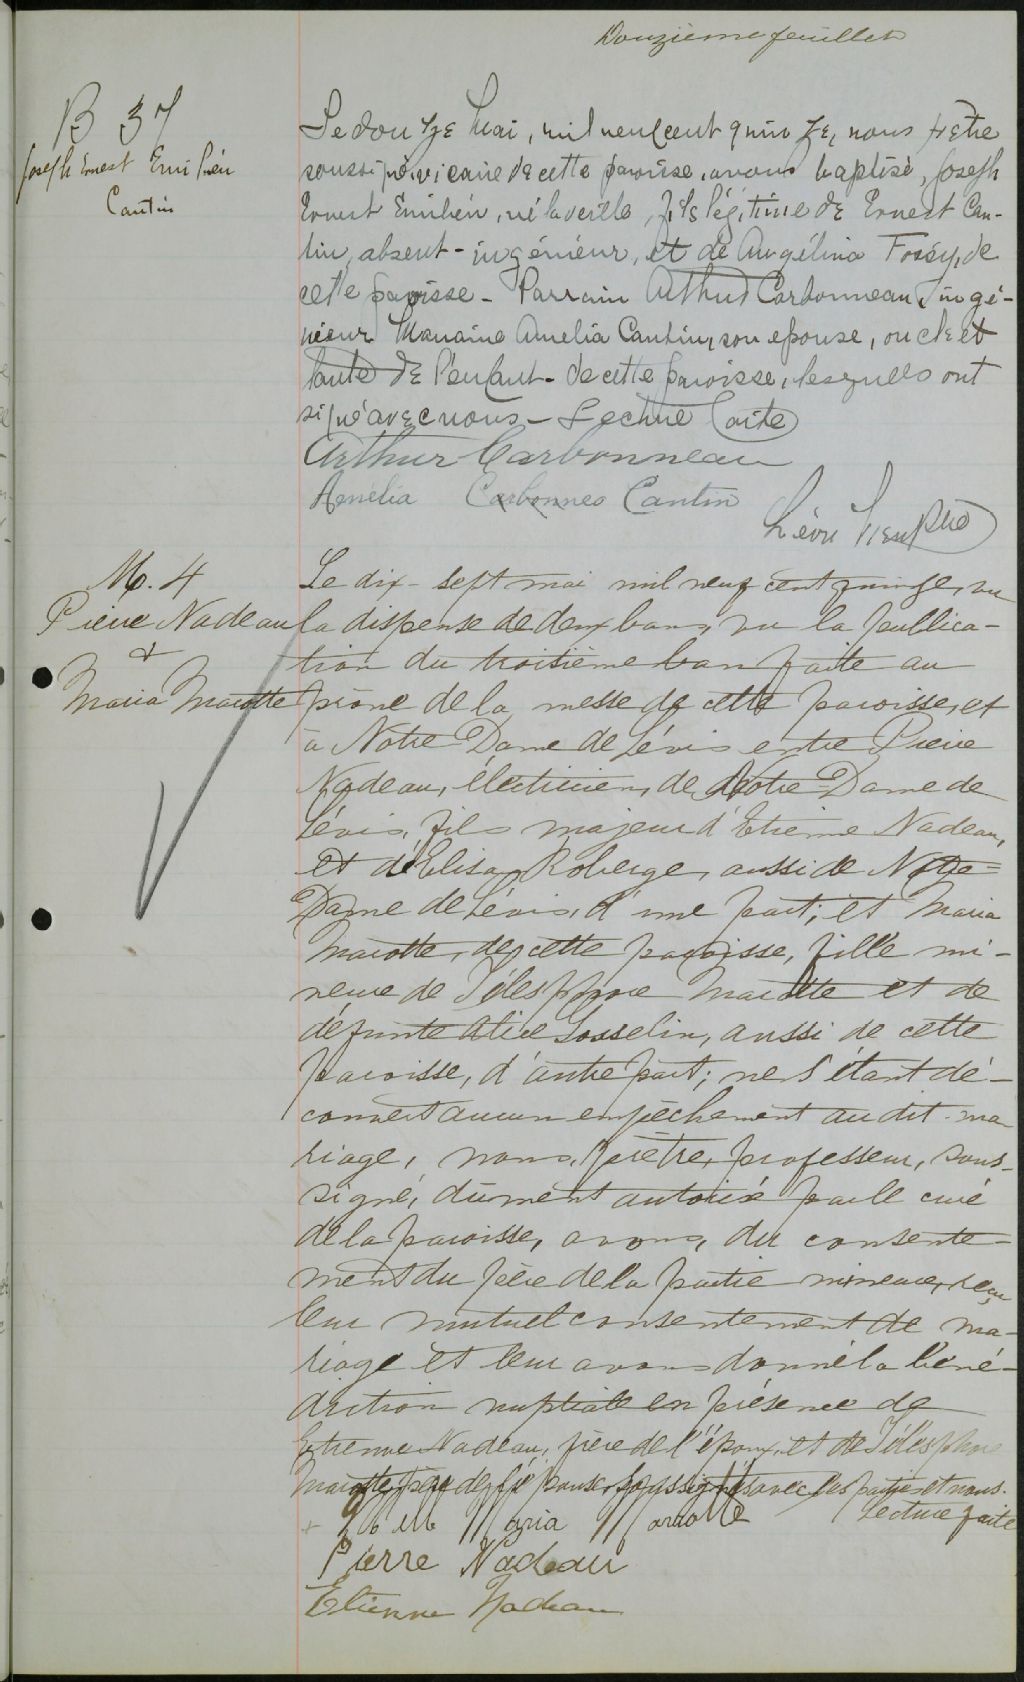 Douzième feuillet
B 37
Joseph Ernest Emilien
Cantin
Le douze Mai, mil neuf cent quinze, nous prêtre
soussigné, vicaire de cette paroisse, avons baptisé, Joseph
Ernest Emilien, né la veille, fils légitime de Ernest Can-
tin, absent - ingénieur, et de Angélina Fossy, de
cette paroisse - Parrain Arthur Carbonneau, ingé-
nieur Marraine Amelia Cantin, son epouse, oncle et
tante de l'enfant - de cette paroisse, lesquels ont
signé avec nous - Lecture faite
Arthur Carbonneau
Amélia Carbonneo Cantin
Léon Ptre
M. 4
Pierre Nadeau
&
Maria Marotte
Le dix-sept mai mil neuf cent quinze, vu
la dispense de deux bans, vu la publica-
tion du troisième ban faite au
prône de la messe de cette paroisse, et
à Notre Dame de Lévis entre Pierre
Nadeau, électricien, de Notre-Dame de
Lévis, fils majeur d'Etienne Nadeau,
et d'Elisa Roberge, aussi de Notre=
Dame de Lévis, d'une part; et Maria
Marotte, de cette paroisse, fille mi-
neure de Télesphore Marotte et de
défunte Alice Gosselin, aussi de cette
paroisse, d'autre part; ne s'étant dé-
couvert aucun empêchement au dit ma-
riage, nous, prêtre, professeur, sous-
signé, dûment autorisé par le curé
de la paroisse, avons, du consente-
ment du père de la partie mineure, reçu
leur mutuel consentement de ma-
riage et leur avons donné la béné-
diction nuptiale en présence de
Etienne Nadeau, père de l'époux, et de Télesphore
Marotte, père de l'épouse, soussignés avec les parties et nous.
Lecture faite
+ Maria Marotte
Pierre Nadeau
Etienne Nadeau